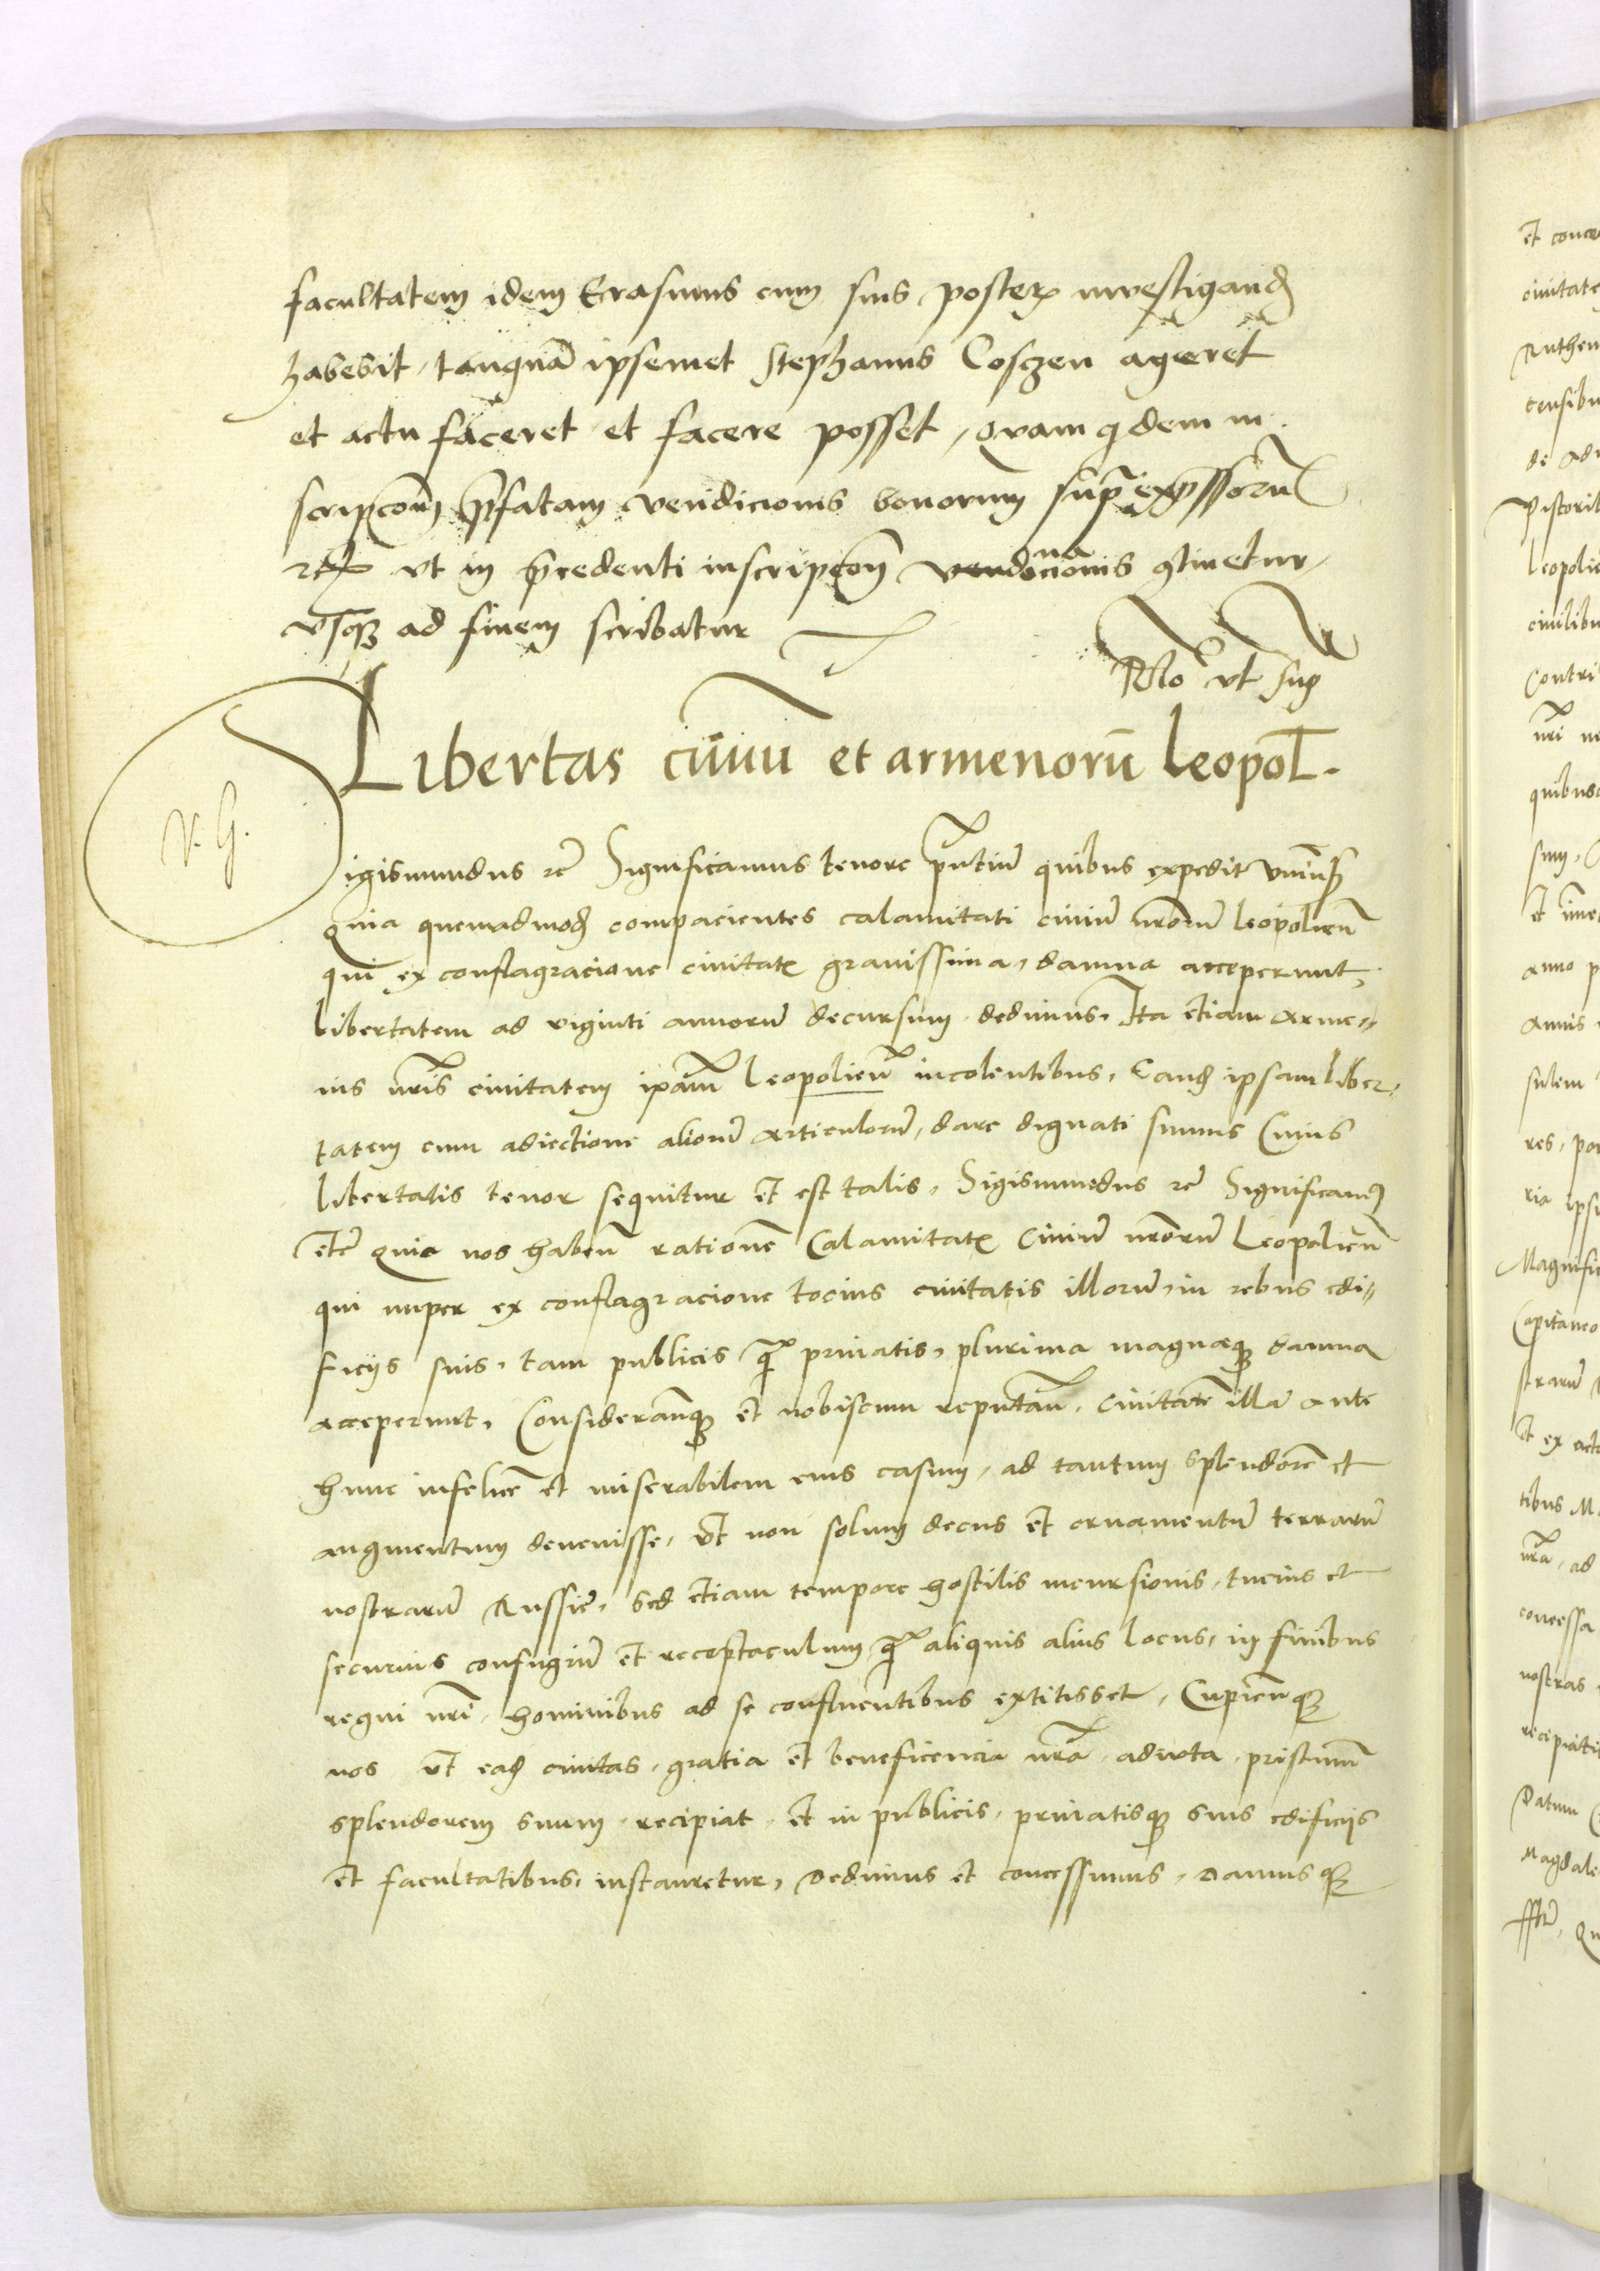 facultatem idem Erasmus cum suis posteris investigand
habebit, tanquā ipsemet Stephanus Coschen ageret
et actu faceret et facere posset, Quam qdem in
scripcōm prefatam vendicionis bonorum supra expressorū
etc ut in precedenti inscripcōn vendicionis continetur,
usque ad finem scribatur
Rlo ut supra
Libertas civiū et armenorū leopol.
N. G.
Sigismundus etc Significamus tenore pntiū quibus expedit univs
quia quemadmod compacientes calamitati civiū nrorū leopolien
qui ex conflagracione civitatis gravissima, damna acceperunt,
libertatem ad viginti annorū decursum dedimus, Ita etiam Arme„
nis nris civitatem ipam Leopolien incolentibus, Eand ipsam liber„
tatem cum adiectione aliorū articulorū, dare dignati sumus Cuius
libertatis tenor sequitur et est talis, Sigismundus etc Significam
etc quia nos haben rationē Calamitatis Civiū nrorū Leopolien
qui nuper ex conflagracione tocius civitatis illorū, in rebus edi„
ficijs suis, tam publicis q privatis, plurima magnaque damna
acceperunt, Considerantque et nobiscum reputan, civitatē illā ante
hunc infelicē et miserabilem eius casum, ad tantum splendorē et
augmentum devenisse, ut non solum decus et ornamentū terrarū
nostrarū Russie, sed etiam tempore hostilis incursionis, tucius et
securius confugiū et receptaculum q aliquis alius locus, in finibus
regni nri, hominibus ad se confluentibus extitisset, Cupienque
nos ut ead civitas, gratia et beneficencia nra adiuta, pristinum
splendorem suum recipiat et in publicis, privatisque suis edificijs
et facultatibus, instauretur, Dedimus et concessimus, Damusque
et conce
civitate
Ruthen
censibu
de ad
Pistorib
leopolie
civilibu
Contri
nri ne
quibus
sum,
et ime
anno p
annis
sulem
res, po
ria ipsi
Magnifi
Capitaneo
strarū
et ex act
tibus M
nra, ad
concessa
nostras
recipiati
Datum
Magdale